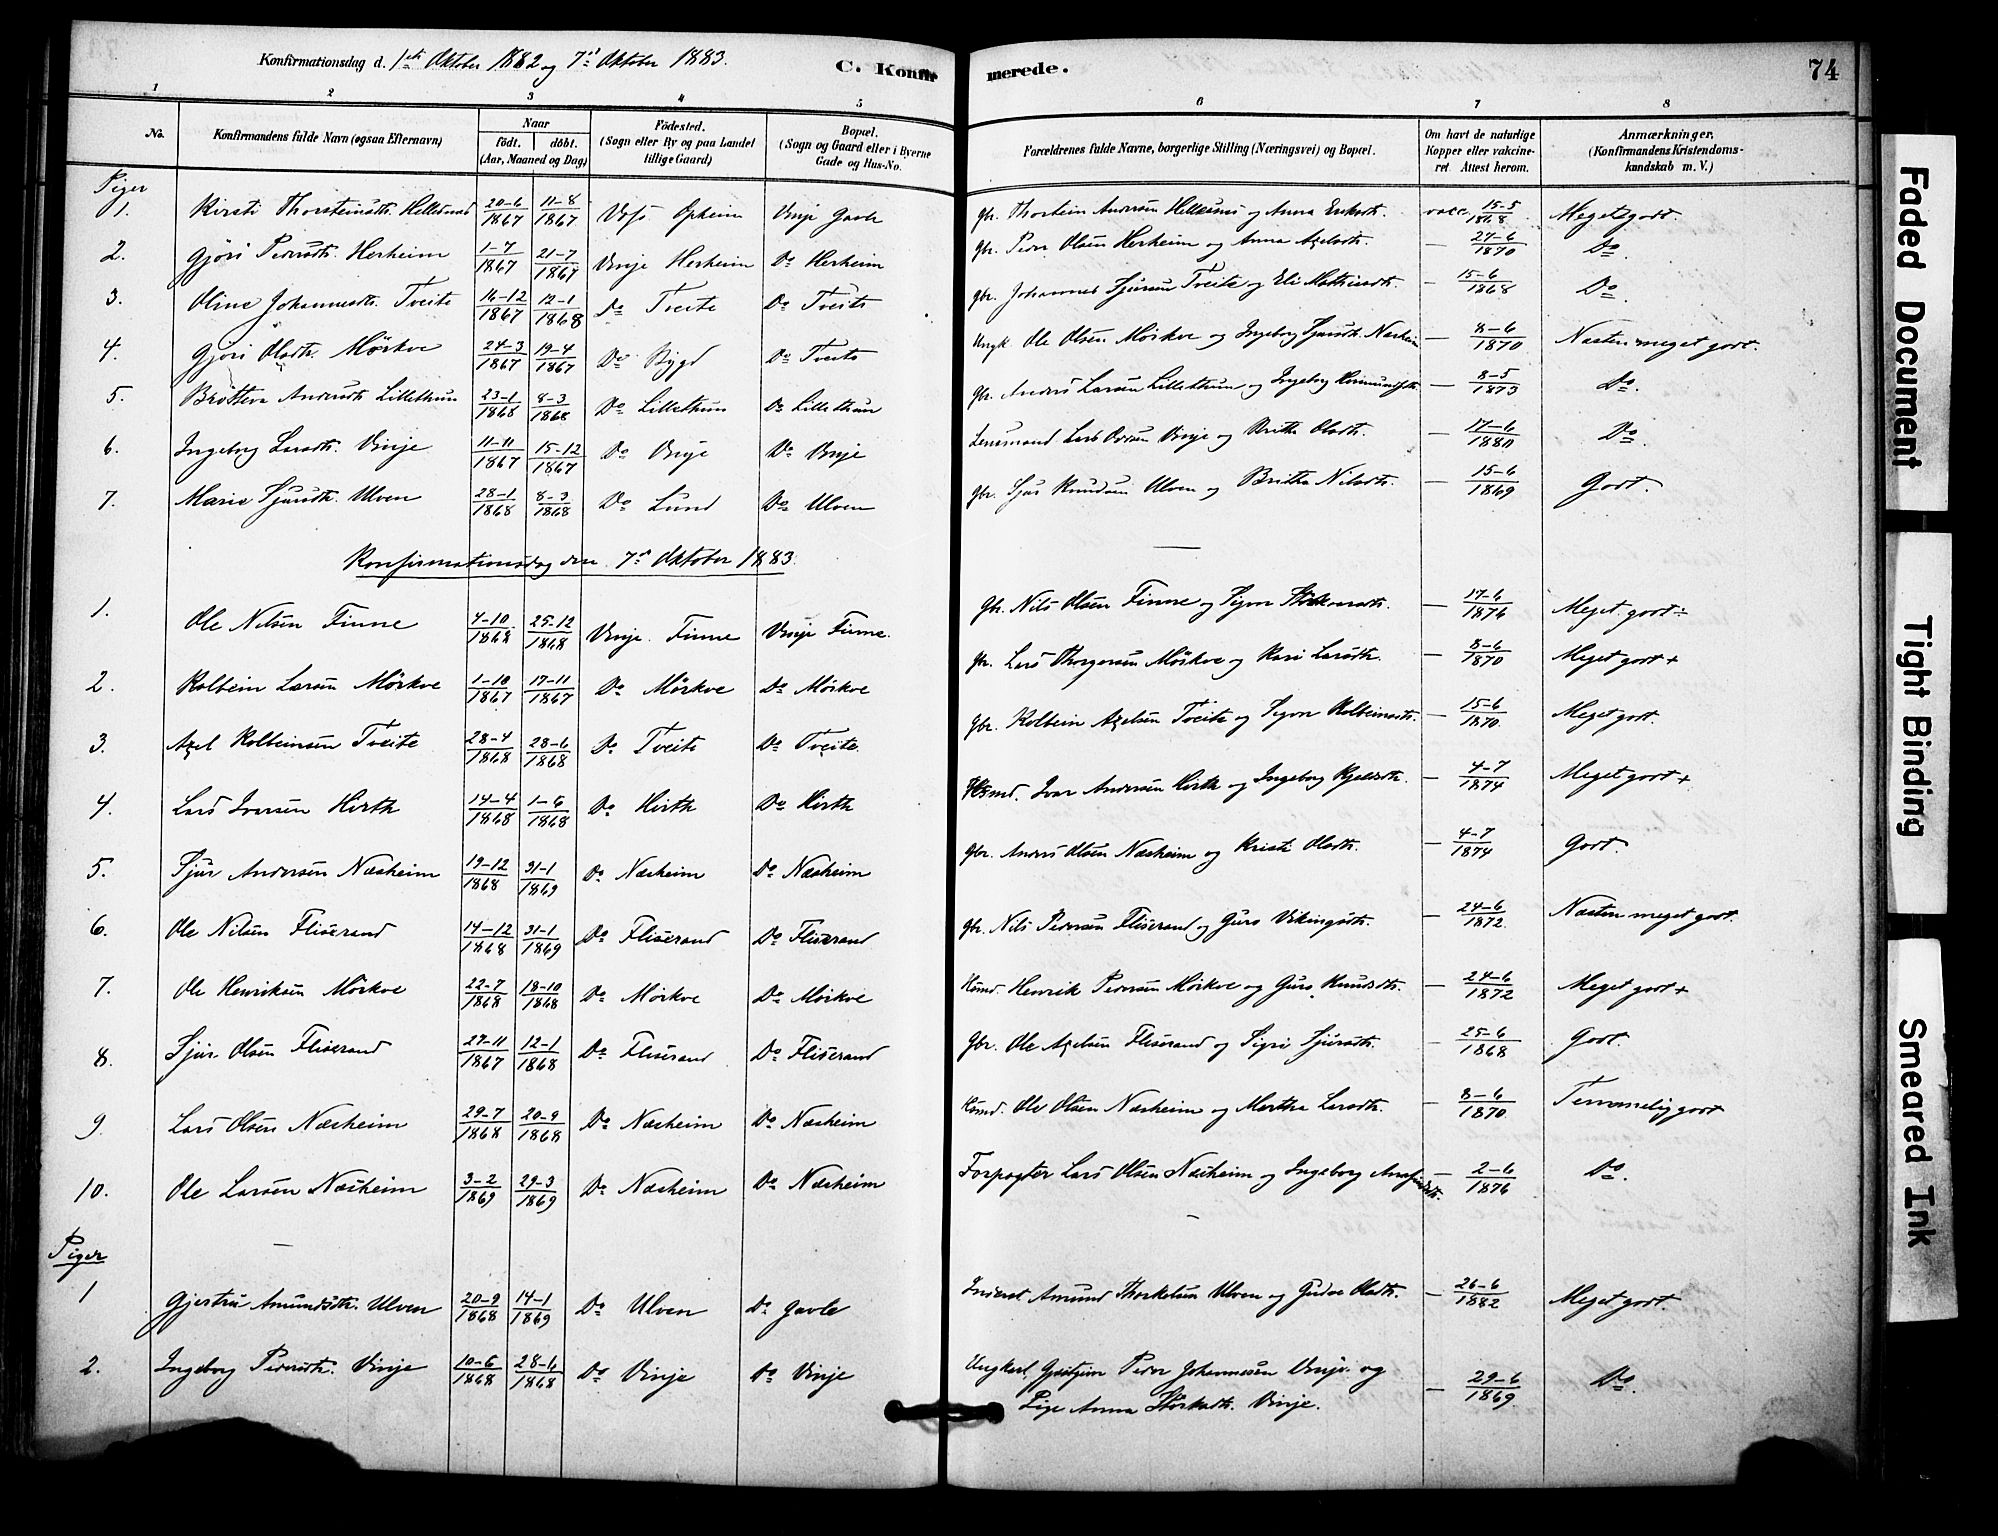 Konfirmationsdag d. 1ste Oktober 1882 og 7de Oktober 1883.
C. Konfirmerede.
74
1 2 3 4 5 6 7 8
No.
Konfirmandens fulde Navn (ogsaa Efternavn)
Naar
født. døbt.
(Aar, Maaned og Dag)
Fødested.
(Sogn eller By og paa Landet
tillige Gaard)
Bopæl.
(Sogn og Gaard eller i Byerne
Gade og Hus-No.
Forældrenes fulde Navne, borgerlige Stilling (Næringsvei) og Bopæl.
Om havt de naturlige
Kopper eller vakcine-
ret Attest herom.
Anmærkninger,
(Konfirmandens Kristendoms-
kundskab m. V.)
Piger
1. Kirsti Thorsteinsdtr. Helletnæs 20-6 1867 11-8 1867 Voss Opheim Vinje Gavle gbr. Thorstein Andersen Helletnæs og Anna Eriksdtr. vacc. 15-5 1868 Meget godt
2. Gjøri Pedersdtr. Herheim 1-7 1867 21-7 1867 Vinje Herheim Do Herheim gbr. Peder Olsen Herheim og Anna Axelsdtr. — 24-6 1870 Do
3. Oline Johannesdtr. Tveite 16-12 1867 12-1 1868 Do Tveite Do Tveite gbr. Johannes Sjursen Tveite og Eli Mathiasdtr. — 15-6 1868 Do.
4. Gjøri Olsdtr. Mørkve 24-3 1867 19-4 1867 Do Bygd Do Tveite Ungk. Ole Olsen Mørkve og Ingeborg Sjursdtr. Næsheim — 8-6 1870 Næsten meget godt.
5. Brötteva Andersdtr. Lillethun 23-1 1868 8-3 1868 Do Lillethun Do Lillethun gbr. Anders Larsen Lillethun og Ingeborg — 8-5 1873 Do.
6. Ingeborg Larsdtr. Vinje 11-11 1867 15-12 1867 Do Vinje Do Vinje Lensmand Lars Vinje og Britha Olsdtr. — 17-6 1880 Do.
7. Marie Sjursdtr. Ulven 28-1 1868 8-3 1868 Do Lund Do Ulven gbr. Sjur Knudsen Ulven og Britha Nilsdtr. — 15-6 1869 Godt.
Konfirmationsdag den 7de Oktober 1883.
1. Ole Nilsen Finne 4-10 1868 25-12 1868 Vinje Finne Vinje Finne. gbr. Nils Olsen Finne og Sigvor — 17-6 1876 Meget godt÷
2. Kolbein Larsen Mørkve 1-10 1867 17-11 1867 Do Mørkve Do Mørkve gbr. Lars Thorgersen Mørkve og Kari Larsdtr. — 8-6 1870 Meget godt+
3. Axel Kolbeinsen Tveite 28-4 1868 28-6 1868 Do Tveite Do Tveite. gbr. Kolbein Axelsen Tveite og Sigvor Kolbeinsdtr. — 15-6 1870. Meget godt.
4. Lars Ivarsen Hirth 14-4 1868 1-6 1868 Do Hirth Do Hirth Husmd. Ivar Andersen Hirth og Ingeborg Kjelsdtr. — 4-7 1874 Meget godt+
5. Sjur Andersen Næsheim 19-12 1868 31-1 1869 Do Næsheim Do Næsheim gbr. Anders Olsen Næsheim og Kristi Olsdtr. — 4-7 1874 Godt.
6. Ole Nilsen Flisrand 14-12 1868 31-1 1869 Do Flisrand Do Flisrand gbr. Nils Pedersen Flisrand og Guro Vikingsdtr. — 24-6 1872. Næsten meget godt.
7. Ole Henriksen Mørkve 22-7 1868 18-10 1868 Do Mørkve Do Mørkve Husmd. Henrik Pedersen Mørkve og Guro Knudsdtr. — 24-6 1872 Meget godt+
8. Sjur Olsen Flisrand 27-11 1867 12-1 1868 Do Flisrand Do Flisrand gbr. Ole Axelsen Flisrand og Sigri Sjursdtr. — 25-6 1868 Godt.
9. Lars Olsen Næsheim 29-7 1868 20-9 1868 Do Næsheim Do Næsheim Husmd. Ole Olsen Næsheim og Martha Larsdtr. — 8-6 1870. Temmelig godt
10. Ole Larsen Næsheim 3-2 1869 29-3 1869 Do Næsheim Do Næsheim Forpagter Lars Olsen Næsheim og Ingeborg — 2-6 1876 Do.
Piger
1 Gjertru Amundsdtr. Ulven 20-9 1868 14-1 1869 Do Ulven Do Gavle Inderst Amund Thorkelsen Ulven og Gudve Olsdtr. — 26-6 1882 Meget godt.
2. Ingeborg Pedersdtr. Vinje 10-6 1868 28-6 1868 Do Vinje Do Vinje Ungkarl Peder Johannessen Vinje og
Pige Anna Vinje. — 29-6 1869. Do.
Faded Document
Tight Binding
Smeared Ink